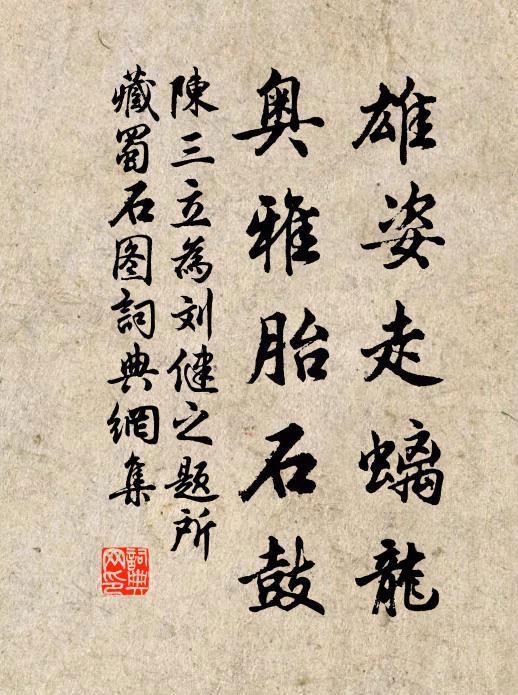 雄姿走螭龍
奥雅胎石鼓
陳三立為刘健之题所
藏蜀石图詞典網集
詞典网印